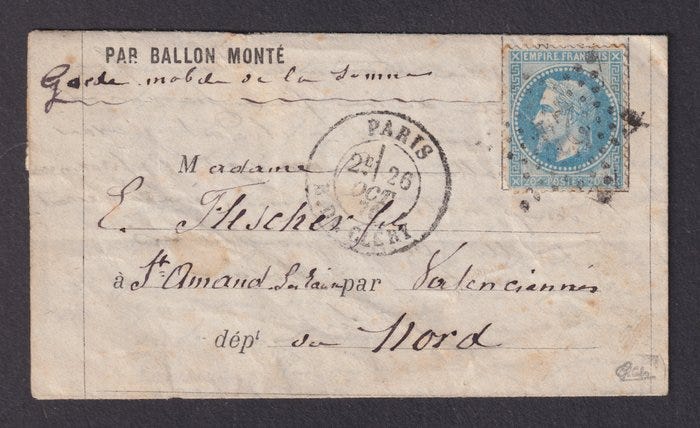 PAR BALLON MONTÉ
Garde mobile de la Somme
EMPIRE FRANÇAIS
PARIS
2E 26
OCT
R. DE CLERY
Madame
E. Flescher
à St Amand Les Eaux par Valenciennes
dépt du Nord